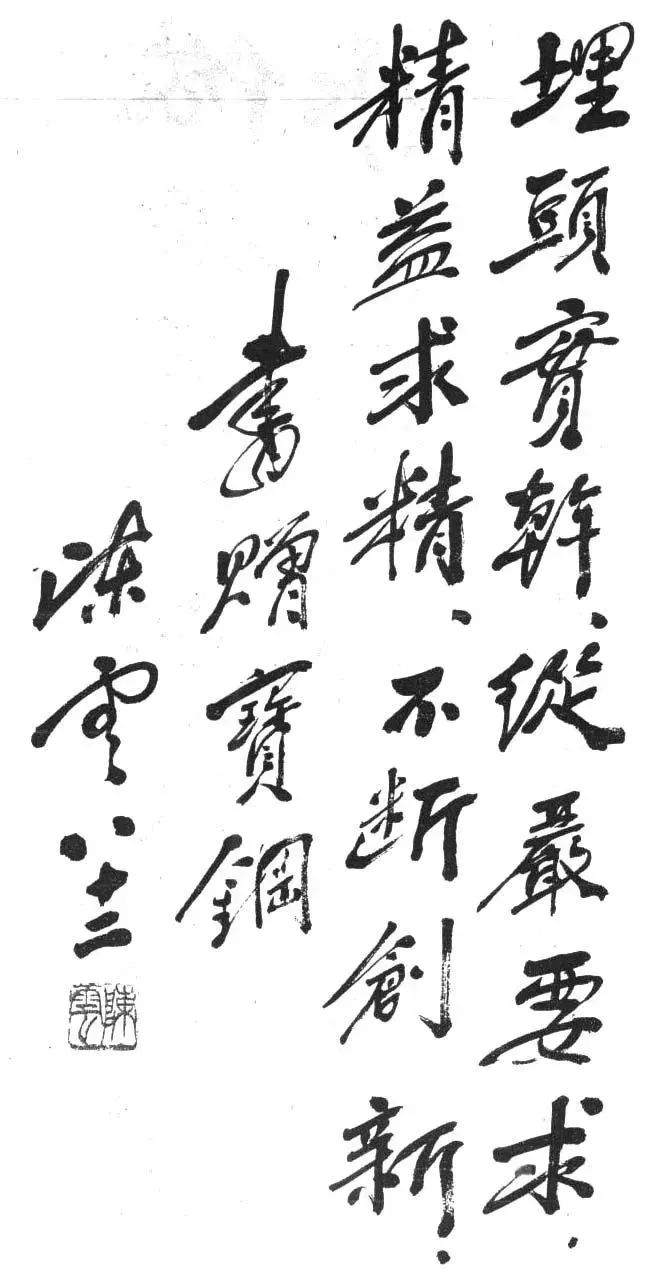 埋頭實幹、從嚴要求、
精益求精、不断創新、
書贈寶鋼
陳雲八十二
陳雲